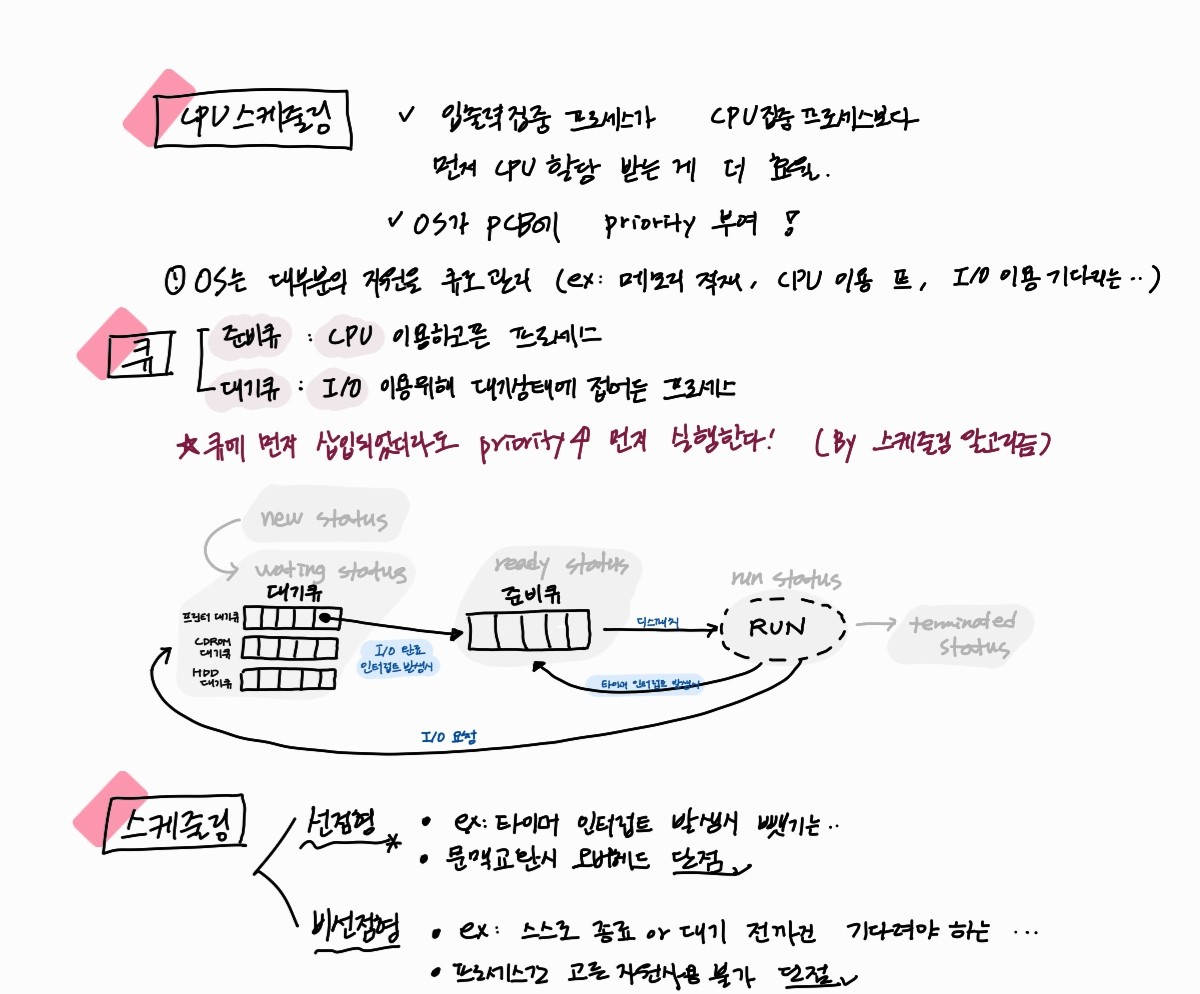 CPU 스케줄링
✓ 입출력 집중 프로세스가 CPU 집중 프로세스보다
먼저 CPU 할당 받는 게 더 효율.
✓ OS가 PCB에 priority 부여 !
OS는 대부분의 자원을 큐로 관리 (ex: 메모리 적재, CPU 이용 프, I/O 이용 기다리는..)
큐
준비큐 : CPU 이용하고픈 프로세스
대기큐 : I/O 이용위해 대기상태에 접어든 프로세스
☆ 큐에 먼저 삽입되었더라도 priority↑ 먼저 실행한다! (By 스케줄링 알고리즘)
new status
wating status
대기큐
프린터 대기큐
CDROM
대기큐
HDD
대기큐
I/O 완료
인터럽트 발생시
ready status
준비큐
디스패치
run status
RUN
terminated
status
타이머 인터럽트 발생시
I/O 요청
스케줄링
선점형*
• ex: 타이머 인터럽트 발생시 뺏기는..
• 문맥교환시 오버헤드 단점
비선점형
• ex: 스스로 종료 or 대기 전까진 기다려야 하는 ...
• 프로세스간 고른 자원사용 불가 단점